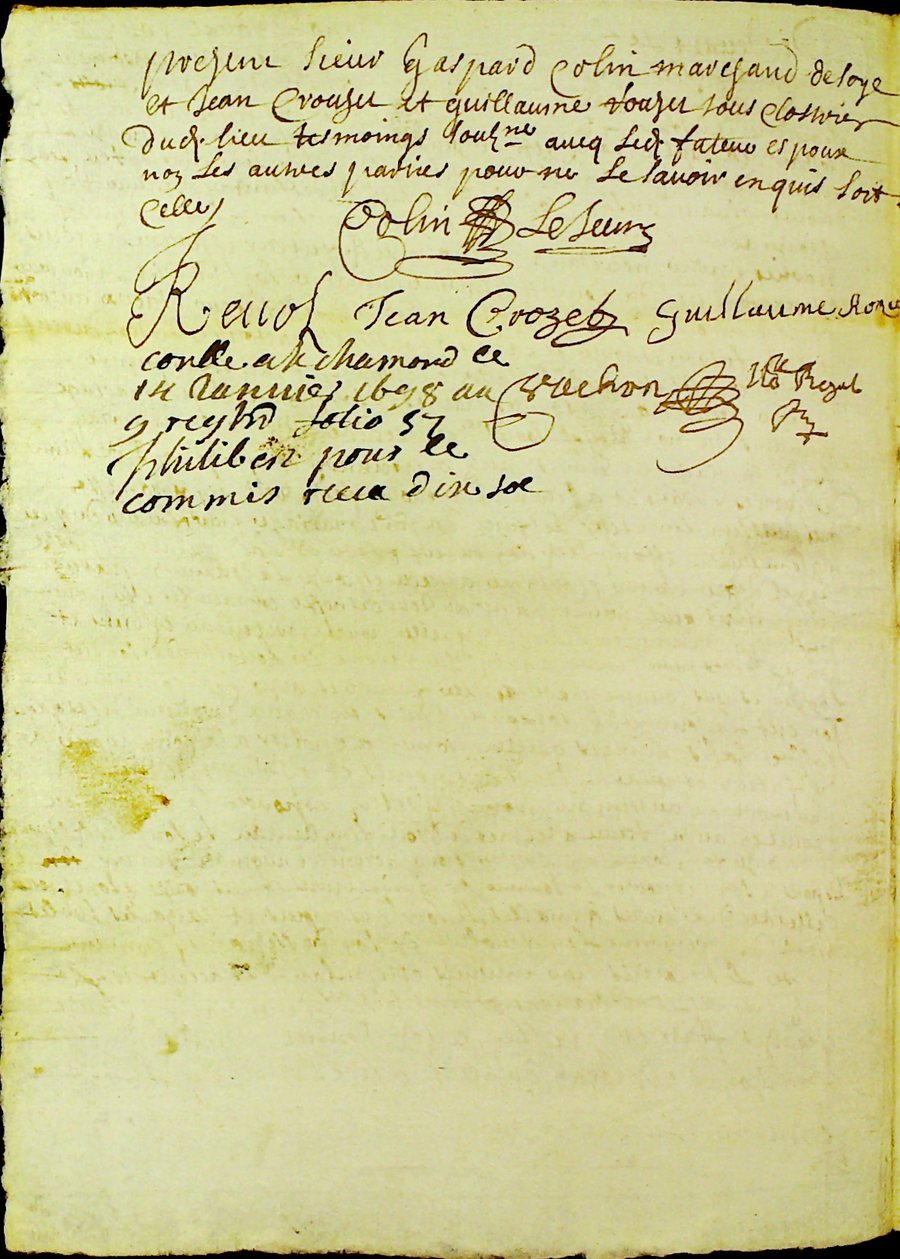 present sieur Gaspard Colin marchand de soye
et Jean Crouzet et guillaume rouzet tous Clostrier
dud. lieu tesmoings soubz.ne aueq led. futeur espoux
non Les autres parties pour ne Le Sauoir enquis Soit
Celle
Colin LeJeune
Reuol Jean Crozet guillaume
conlle a st chamond ce
14 Januier 1698 au Vachon No.re Royal
9 regtre folio 57
philibert pour le
commis receu dix sol